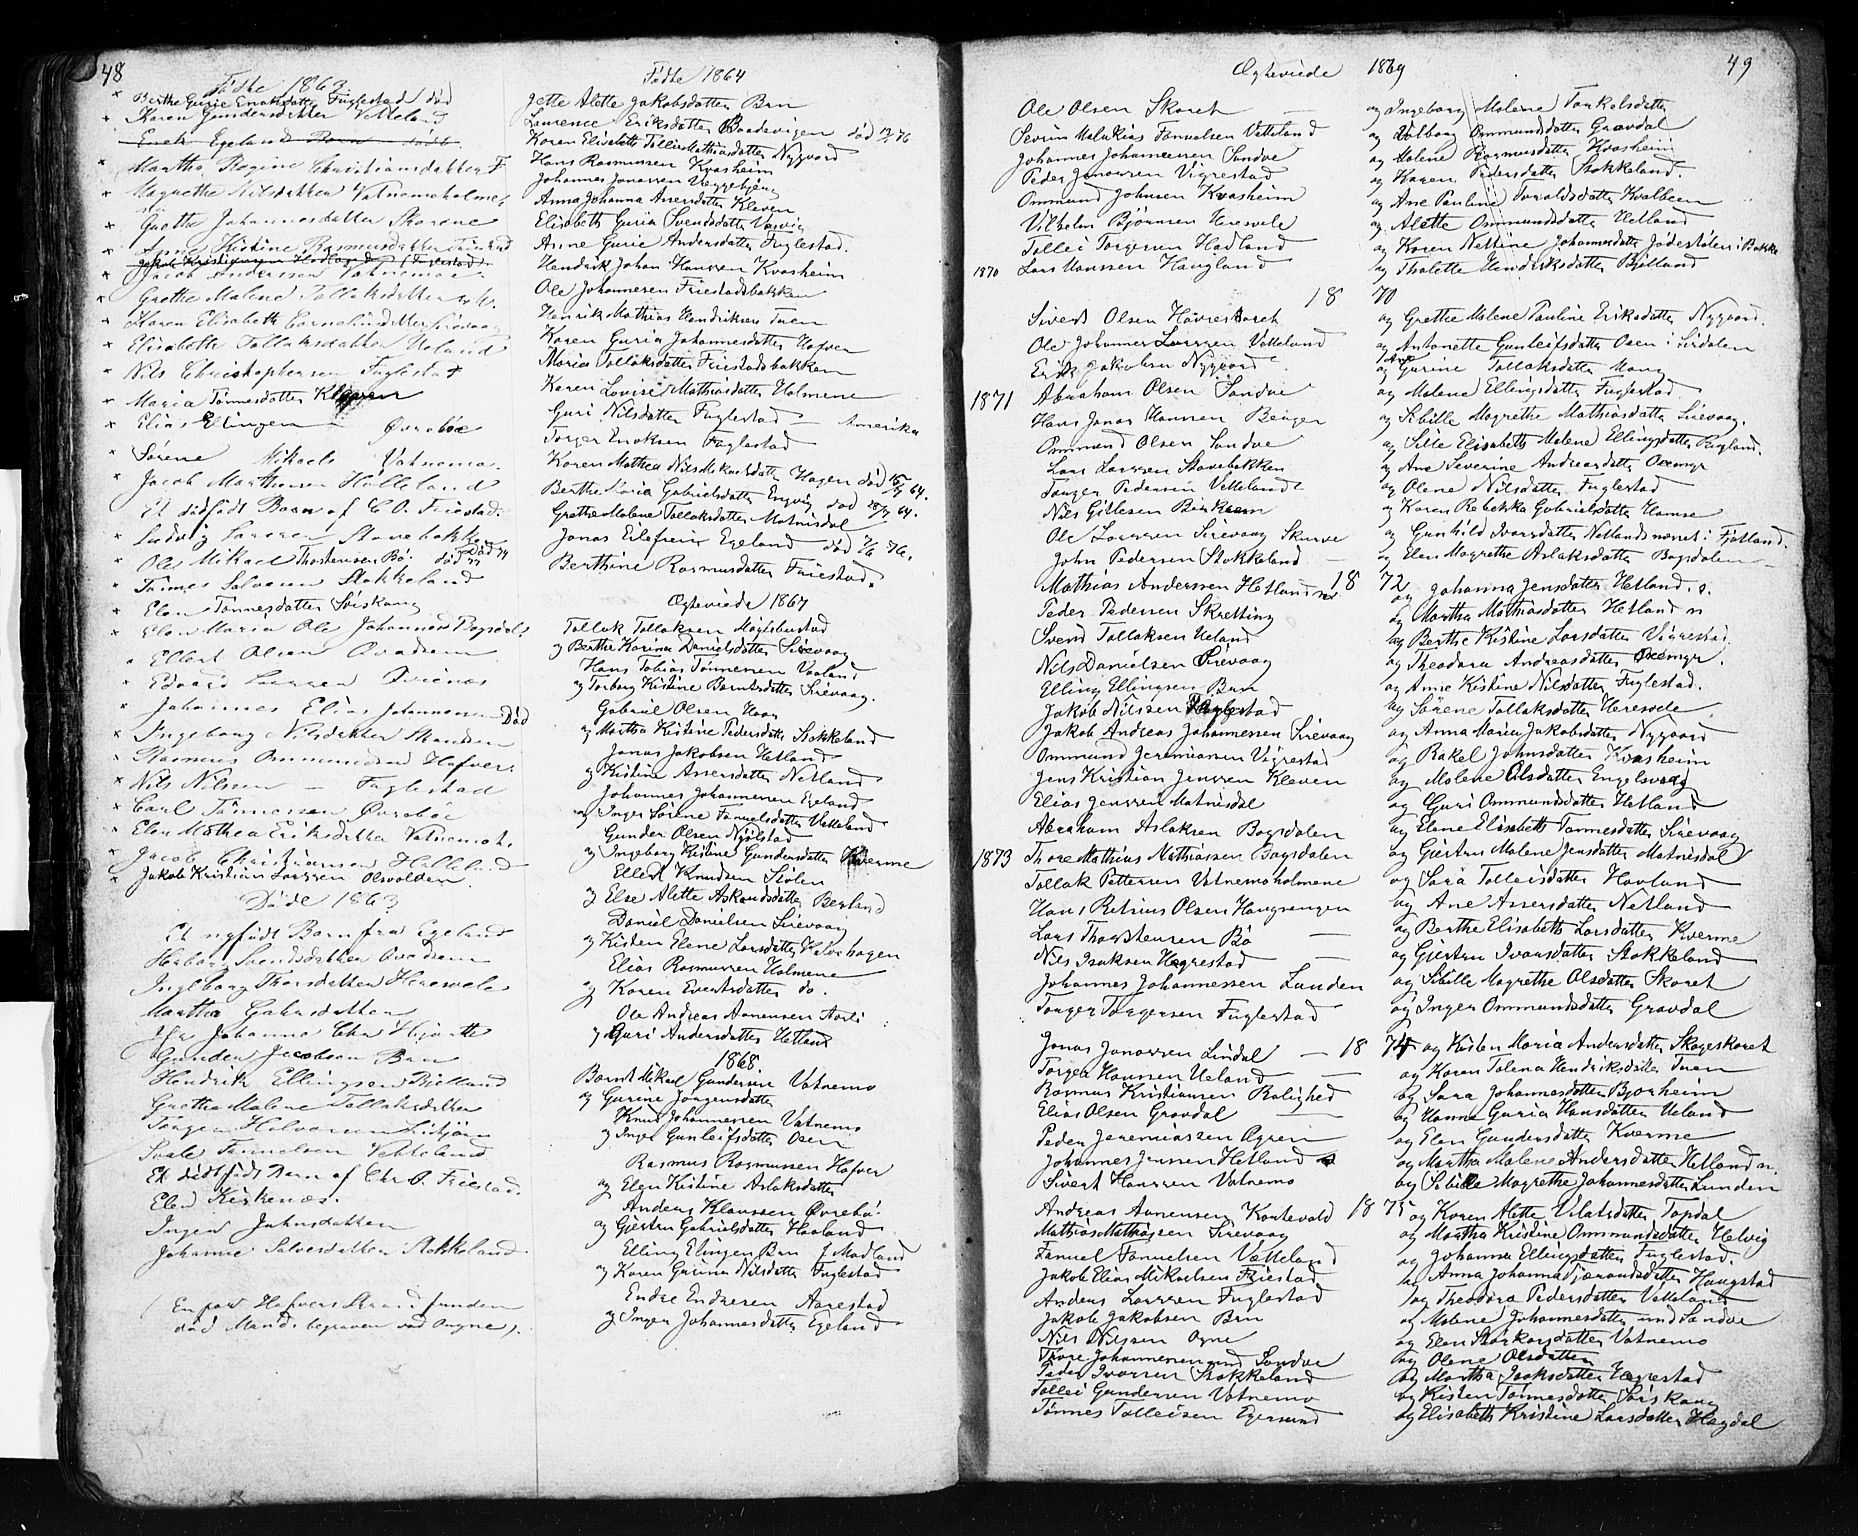 48
Fødte 1863
Berthe Gurie Enoksdatter Fuglestad død
Karen Gundersdatter Vetteland
Enok Egeland Barn død
Martha Regine Christiansdatter F
Magrethe Nilsdatter Vatnemoholmen
Grethe Johannesdatter Skorene
Anne Kistine Rasmusdatter Friestad
Jakob Kristiansen Hodland
Jacob Andersen Vatnemo
Grethe Malene Tollaksdatter
Karen Elisabeth Corneliusdatter Sirevaag
Elisabeth Tollaksdatter Ueland
Nils Christophersen Fuglestad
Maria Tønnesdatter
Elias Ellingsen Øvrebøe
Sørene Mikaels Vatnemo
Jacob Mathiesen Helleland
Et dødfødt Barn af C. O. Friestad.
Ludvig Larsen Stavebakken
Ole Mikael Thorstensen Bø død
Tønnes Salvesen Stokkeland
Elen Tønnesdatter Sørskaug
Elen Maria Ole Johannes Bogsdal
Ellert Olsen Ovedrum
Edvard Larsen
Johannes Elias Johannesen Død
Ingeborg Nilsdatter
Rasmus Ommundsen Hafver
Nils Nilsen Fuglestad
Carl Tønnessen Øvrebø
Elen Mathea Eriksdatter Vatnemoh.
Jacob Christiansen Helleland
Jakob Kristian Larssen Osvolden.
Døde 1863
Et nyfødt Barn fra Egeland
Herborg Svendsdatter Ovedrum
Ingeborg Thorsdatter Heresvele
Martha Gabrielsdatter
Johanne
Gunder Jacobsen Brn
Hendrik Ellingsen Bjelland
Grethe Malene Tollaksdatter
Torger Halvorsen
Svale Fanuelsen Vetteland
Et dødfødt Barn af Chr. O. Friestad.
Elen Kirkenæs.
Inger Johnsdatter
Johanne Salvesdatter Stokkeland
En paa Hafver Strand funden
død Mand, begraven ved Ougne.
Fødte 1864
Jette Alette Jakobsdatter Brn
Laurence Eriksdatter Baadevigen død 76
Karen Elisabeth Tollis Mathiasdatter Nygaard
Hans Rasmussen Kvasheim
Johannes Jonassen Veggebjerg
Anna Johanna Assersdatter Kleven
Elisabeth Guria Svendsdatter Vasvig
Anne Gurie Andersdatter Fuglestad.
Hendrik Johan Hanssen Kvasheim
Ole Johannesen Friestadbakken
Henrik Mathias Hendriksen Tuen
Karen Guria Johannesdatter Hafver
Maria Tollaksdatter Friestadbakken
Karen Lovise Mathiasdatter Holmene
Guri Nilsdatter Fuglestad Amerika
Torger Enoksen Fuglestad
Karen Mathea Nils Mikaelsdatter Hagen død 64.
Berthe Maria Gabrielsdatter Engvig død 64.
Grethe Malene Tollaksdatter Matnisdal
Jonas Eilefsen Egeland død 76.
Berthine Rasmusdatter Friestad.
Ægteviede 1867
Tollak Tollaksen Møglebustad
og Berthe Karina Danielsdatter Sirevaag
Hans Tobias Tønnesen Voeland
og Torborg Kistine Berntsdatter Sirevaag.
Gabriel Olsen Haar
og Martha Kistine Pedersdatter Stokkeland
Jonas Jakobsen Hetland
og Kistine Assersdatter Netland
Johannes Johannesen Egeland
og Inger Sørene Fanuelsdatter Vetteland
Gunder Olsen Nylstad
og Ingeborg Kistine Gundersdatter Kverme
Ellert Knudsen Stølen
og Else Alette Askundsdatter Berland
Daniel Danielsen Sirevaag
og Kisten Elene Larsdatter Halvehagen
Elias Rasmussen Holmene
og Karen Evertsdatter do.
Ole Andreas Aanensen Aarli
og Guri Andersdatter Hetland
1868
Bernt Mikael Gundersen Vatnemo
og Gurene Jørgensdatter
Knud Johannesen Vatnemo
og Inger Gunleifsdatter Osen
Rasmus Rasmussen Hafver
og Elen Kistine Aslaksdatter
Anders Klaussen Øvrebø
og Gjertru Gabrielsdatter Haaland
Elling Elingsen Brn f Madland
og Karen Gurina Nilsdatter Fuglestad
Endre Endresen Aarestad
og Inger Johannesdatter Egeland
49
Ægteviede 1869
Ole Olsen Skoret og Ingeborg Malene Torkelsdatter
Severin Malakias Fanuelsen Vetteland og Valborg Ommundsdatter Gravdal
Johannes Johannessen Sandve og Malene Rasmusdatter Kvasheim
Peder Jonassen Vigrestad og Karen Pedersdatter Stokkeland.
Ommund Johnsen Kvasheim og Ane Pauline Tvaraldsdatter Kvalbeen
Vilhelm Bjørnsen Heresvele og Alette Ommundsdatter Hetland
Tollei Torgersen Hadland og Karen Nettine Johannesdatter Jødestølen i Bakke
1870 Lars Hanssen Haugland og Thalette Hendriksdatter Bjelland
18 70
Sivert Olsen Høvreskoret og Grethe Malene Pauline Eriksdatter Nygaard.
Ole Johannes Larssen Vetteland og Antonette Gunleifsdatter Osen i Sirdalen
Erik Jakobsen Nygaard og Gurine Tollaksdatter Haug
1871 Abraham Olsen Sandve og Malene Ellingsdatter Fuglestad
Hans Jonas Hansen Berger og Sibille Magrethe Mathiasdatter Sirevaag.
Ommund Olsen Sandve og Sille Elisabeth Malene Ellingsdatter Fugland.
Lars Larssen Stavebekken og Ane Severine Andreasdatter Oxemyr
Torger Pedersen Vetteland og Olene Nilsdatter Fuglestad
Nils Gitlesen Birkrem og Karen Rebekka Gabrielsdatter Hamse
Ole Larssen Sirevaag Skurve og Gunhild Ivarsdatter Netlandsneset i Fjotland.
John Pedersen Stokkeland og Elen Magrethe Aslaksdatter Bogsdalen
Mathias Anderssen Hetland n 18 72 og Johanna Jensdatter Hetland. s.
Peder Pedersen Skretting og Martha Mathiasdatter Hetland n
Svend Tollaksen Ueland og Berthe Kistine Larsdatter Vigrestad
Nils Danielsen Sirevaag og Theodora Andreasdatter Oxemyr.
Elling Ellingsen Brn og Anne Kistine Nilsdatter Fuglestad.
Jakob Nilssen Fuglestad og Sørene Tollaksdatter Heresvele
Jakob Andreas Johannessen Sirevaag og Anna Maria Jakobsdatter Nygaard
Ommund Jeremiasen Vigrestad og Rakel Johnsdatter Kvasheim
Jens Kristian Jenssen Kleven og Malene Olsdatter Engelsvaag
Elias Jenssen Matnisdal og Guri Ommundsdatter Hetland
Abraham Aslaksen Bogsdalen og Elene Elisabeth Tønnesdatter Sirevaag
1873 Thore Mathias Mathiassen Bogsdalen og Gjertru Malene Jensdatter Matnisdal
Tollak Pettersen Vatnemoholmene og Sara Tolleisdatter Hovland
Hans Petrius Olsen Haugrengen og Ane Assersdatter Netland
Lars Thorstensen Bø og Berthe Elisabeth Larsdatter Kverme
Nils Isaksen Hegrestad og Gjertru Ivarsdatter Stokkeland
Johannes Johannessen Lunden og Sibille Magrethe Olsdatter Skoret
Torger Torgersen Fuglestad og Inger Ommundsdatter Gravdal
Jonas Jonassen Lindal 18 74 og Kisten Maria Andersdatter Skogeskoret
Torger Hanssen Ueland og Karen Tolena Hendriksdatter Tuen
Rasmus Kristiansen Rolighed og Sara Johannesdatter Bjorheim
Elias Olsen Gravdal og Hanna Guria Hansdatter Ueland
Peder Jeremiassen Ogren og Elen Gundersdatter Kverme
Johannes Jenssen Hetland s og Martha Malene Andersdatter Hetland n.
Sivert Hanssen Vatnemo og Sibille Magrethe Johannesdatter Lunden
Andreas Aanensen Kontevold 18 75 og Karen Alette Vilatsdatter Topdal
Mathias Mathiasen Sirevaag og Martha Kristine Ommundsdatter Helvig
Fanuel Fanuelsen Vetteland og Johanna Ellingsdatter Fuglestad.
Jakob Elias Mikaelsen Friestad og Anna Johanna Tjærandsdatter Haugstad
Anders Larssen Fuglestad og Theodora Pedersdatter Vetteland
Jakob Jakobsen Brn og Malene Johannesdatter und Sandve
Nils Nilssen Ogne og Elen Storkorsdatter Vatnemo
Thore Johannesen und Sandve og Olene Olsdatter
Peder Ivarsen Stokkeland og Martha Isaksdatter Hegrestad
Tollei Gundersen Vatnemo og Kisten Tønnesdatter Sørskaug
Tønnes Tolleisen Egersund og Elisabeth Kristine Larsdatter Hægdal